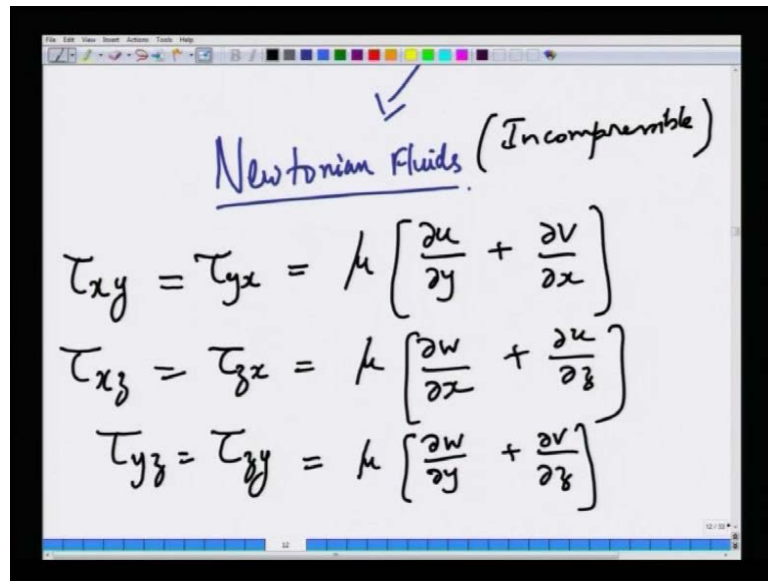 File Edit View Insert Actions Tools Help
Newtonian Fluids. (Incompressible)
τxy = τyx = μ [∂u/∂y + ∂v/∂x]
τxz = τzx = μ [∂w/∂x + ∂u/∂z]
τyz = τzy = μ [∂w/∂y + ∂v/∂z]
12